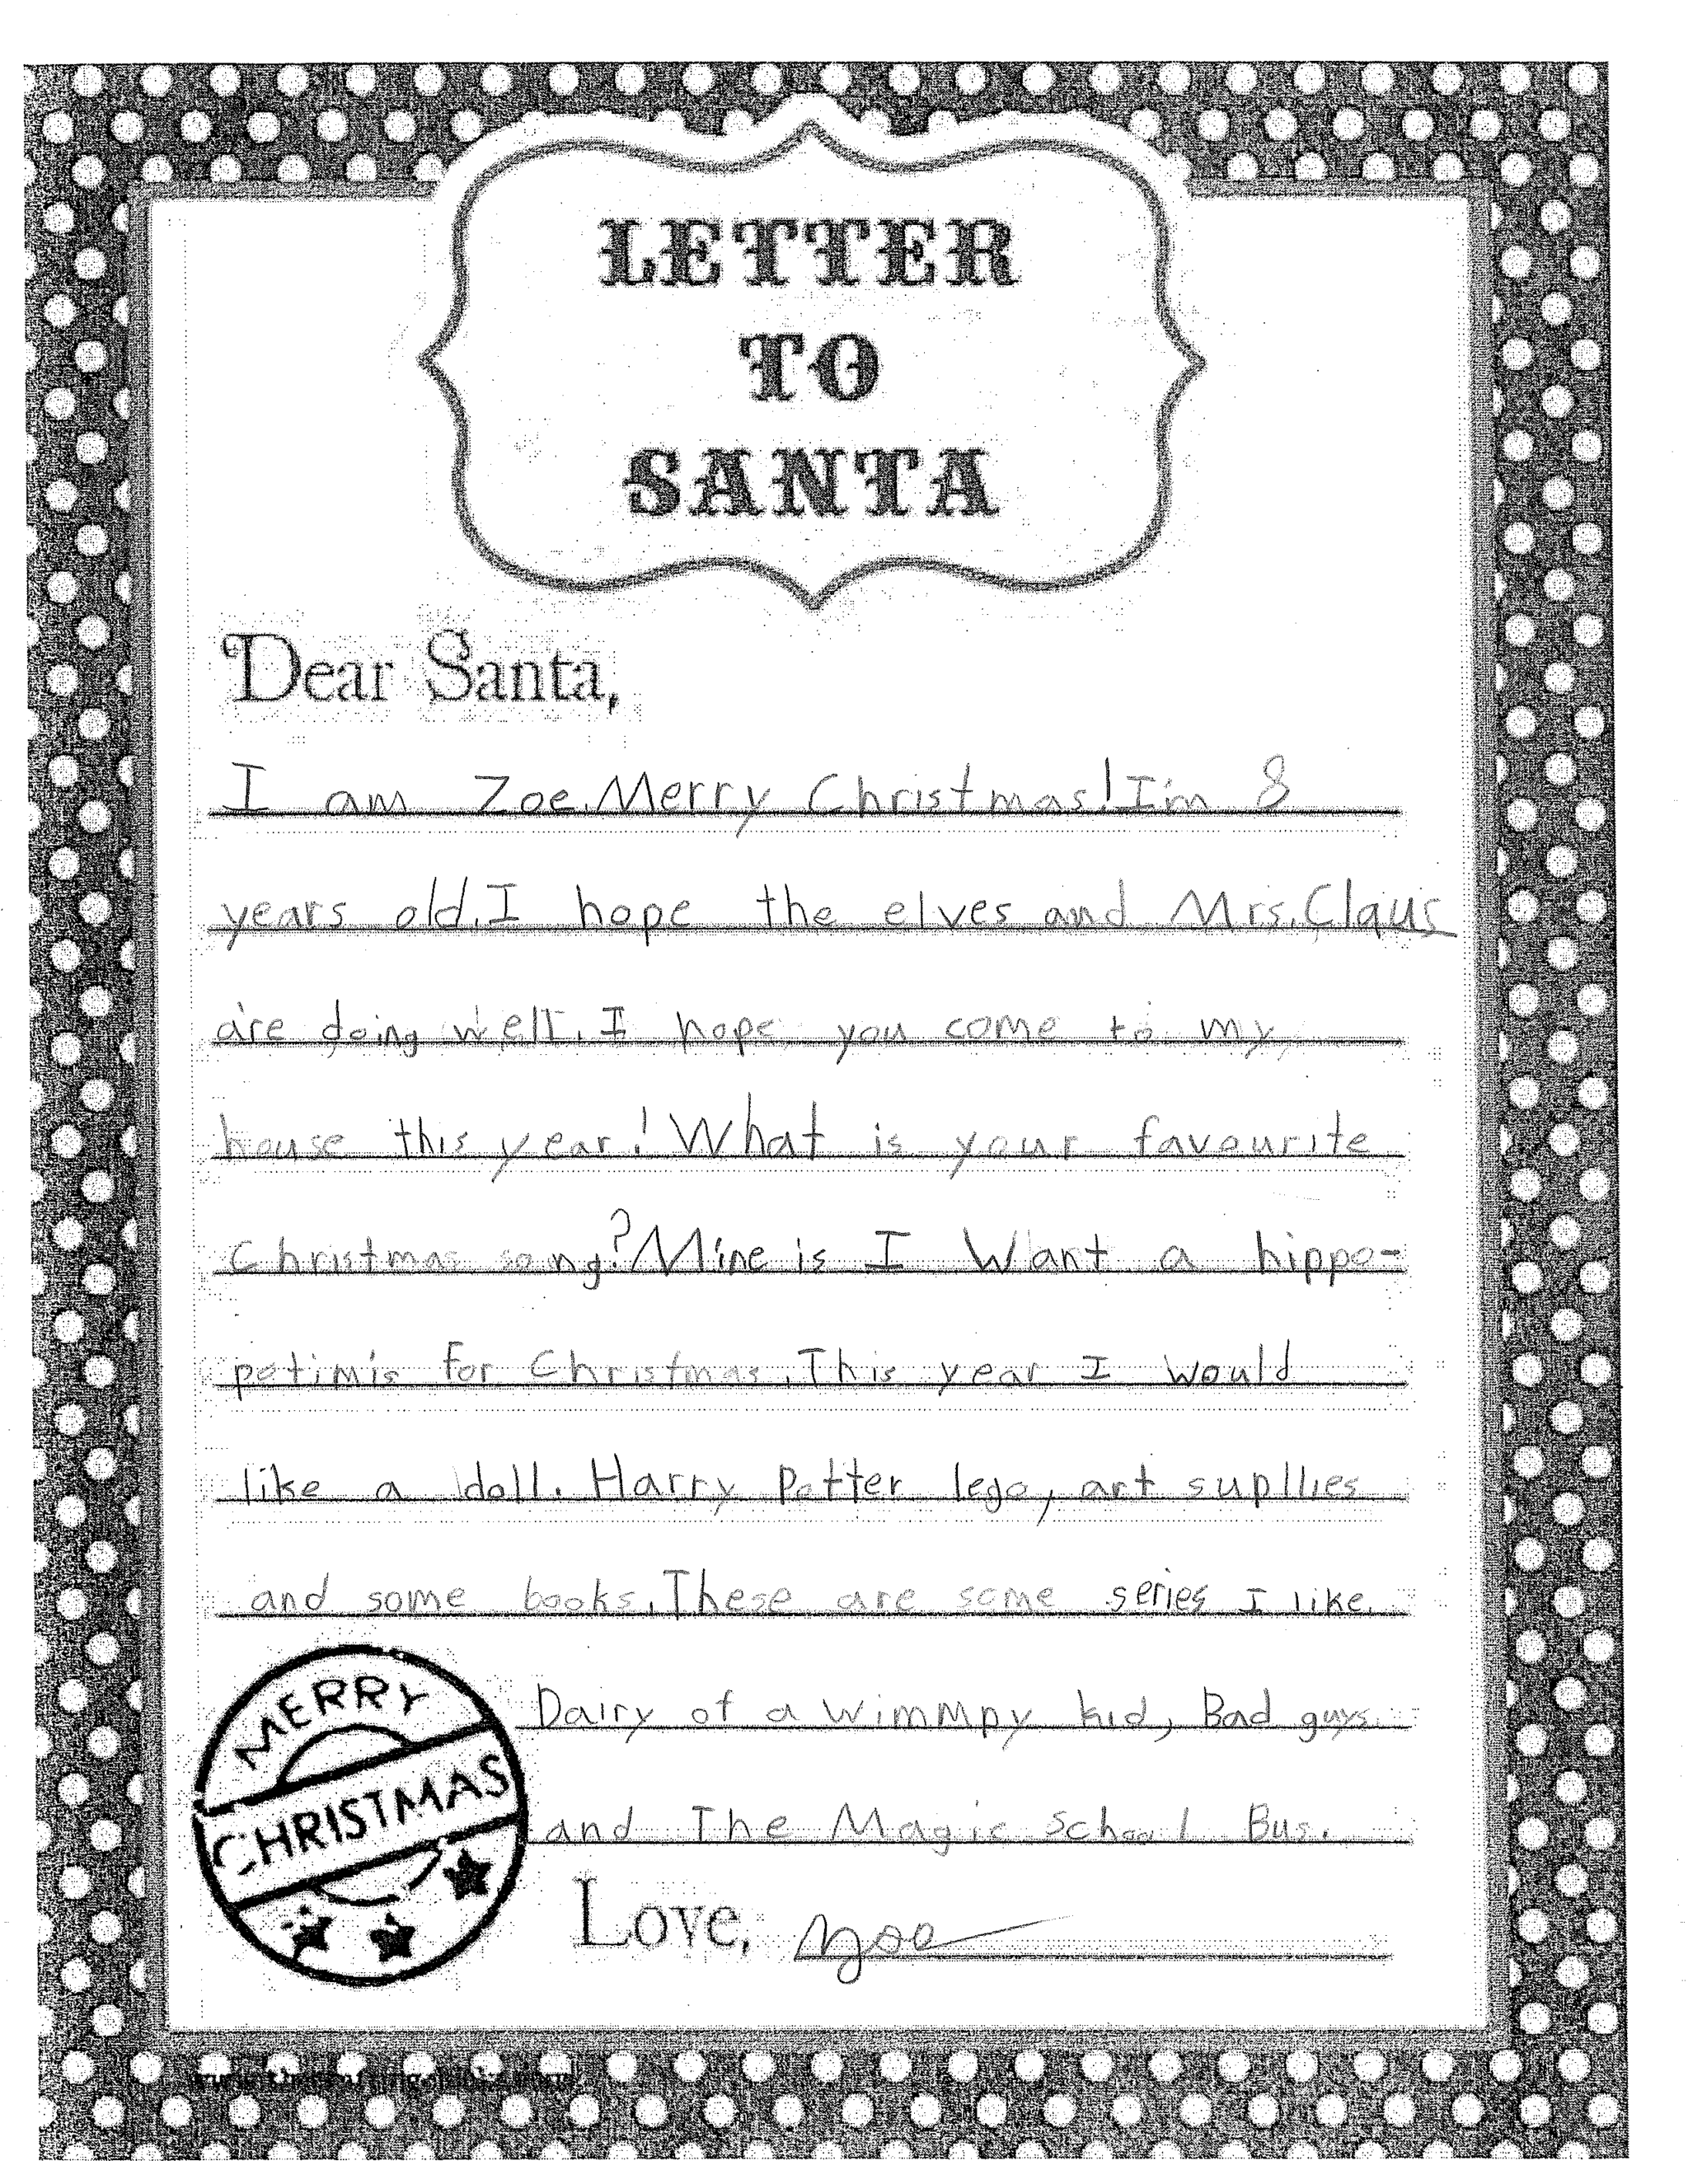 LETTER
TO
SANTA
Dear Santa,
I am Zoe. Merry Christmas! I'm 8
years old. I hope the elves and Mrs. Claus
are doing well. I hope you come to my
house this year! What is your favourite
Christmas song? Mine is I Want a hippo-
potimis for Christmas. This year I would
like a doll. Harry Potter lego, art supllies
and some books. These are some series I like.
Dairy of a Wimmpy kid, Bad guys
and The Magic School Bus.
MERRY
CHRISTMAS
Love, Zoe